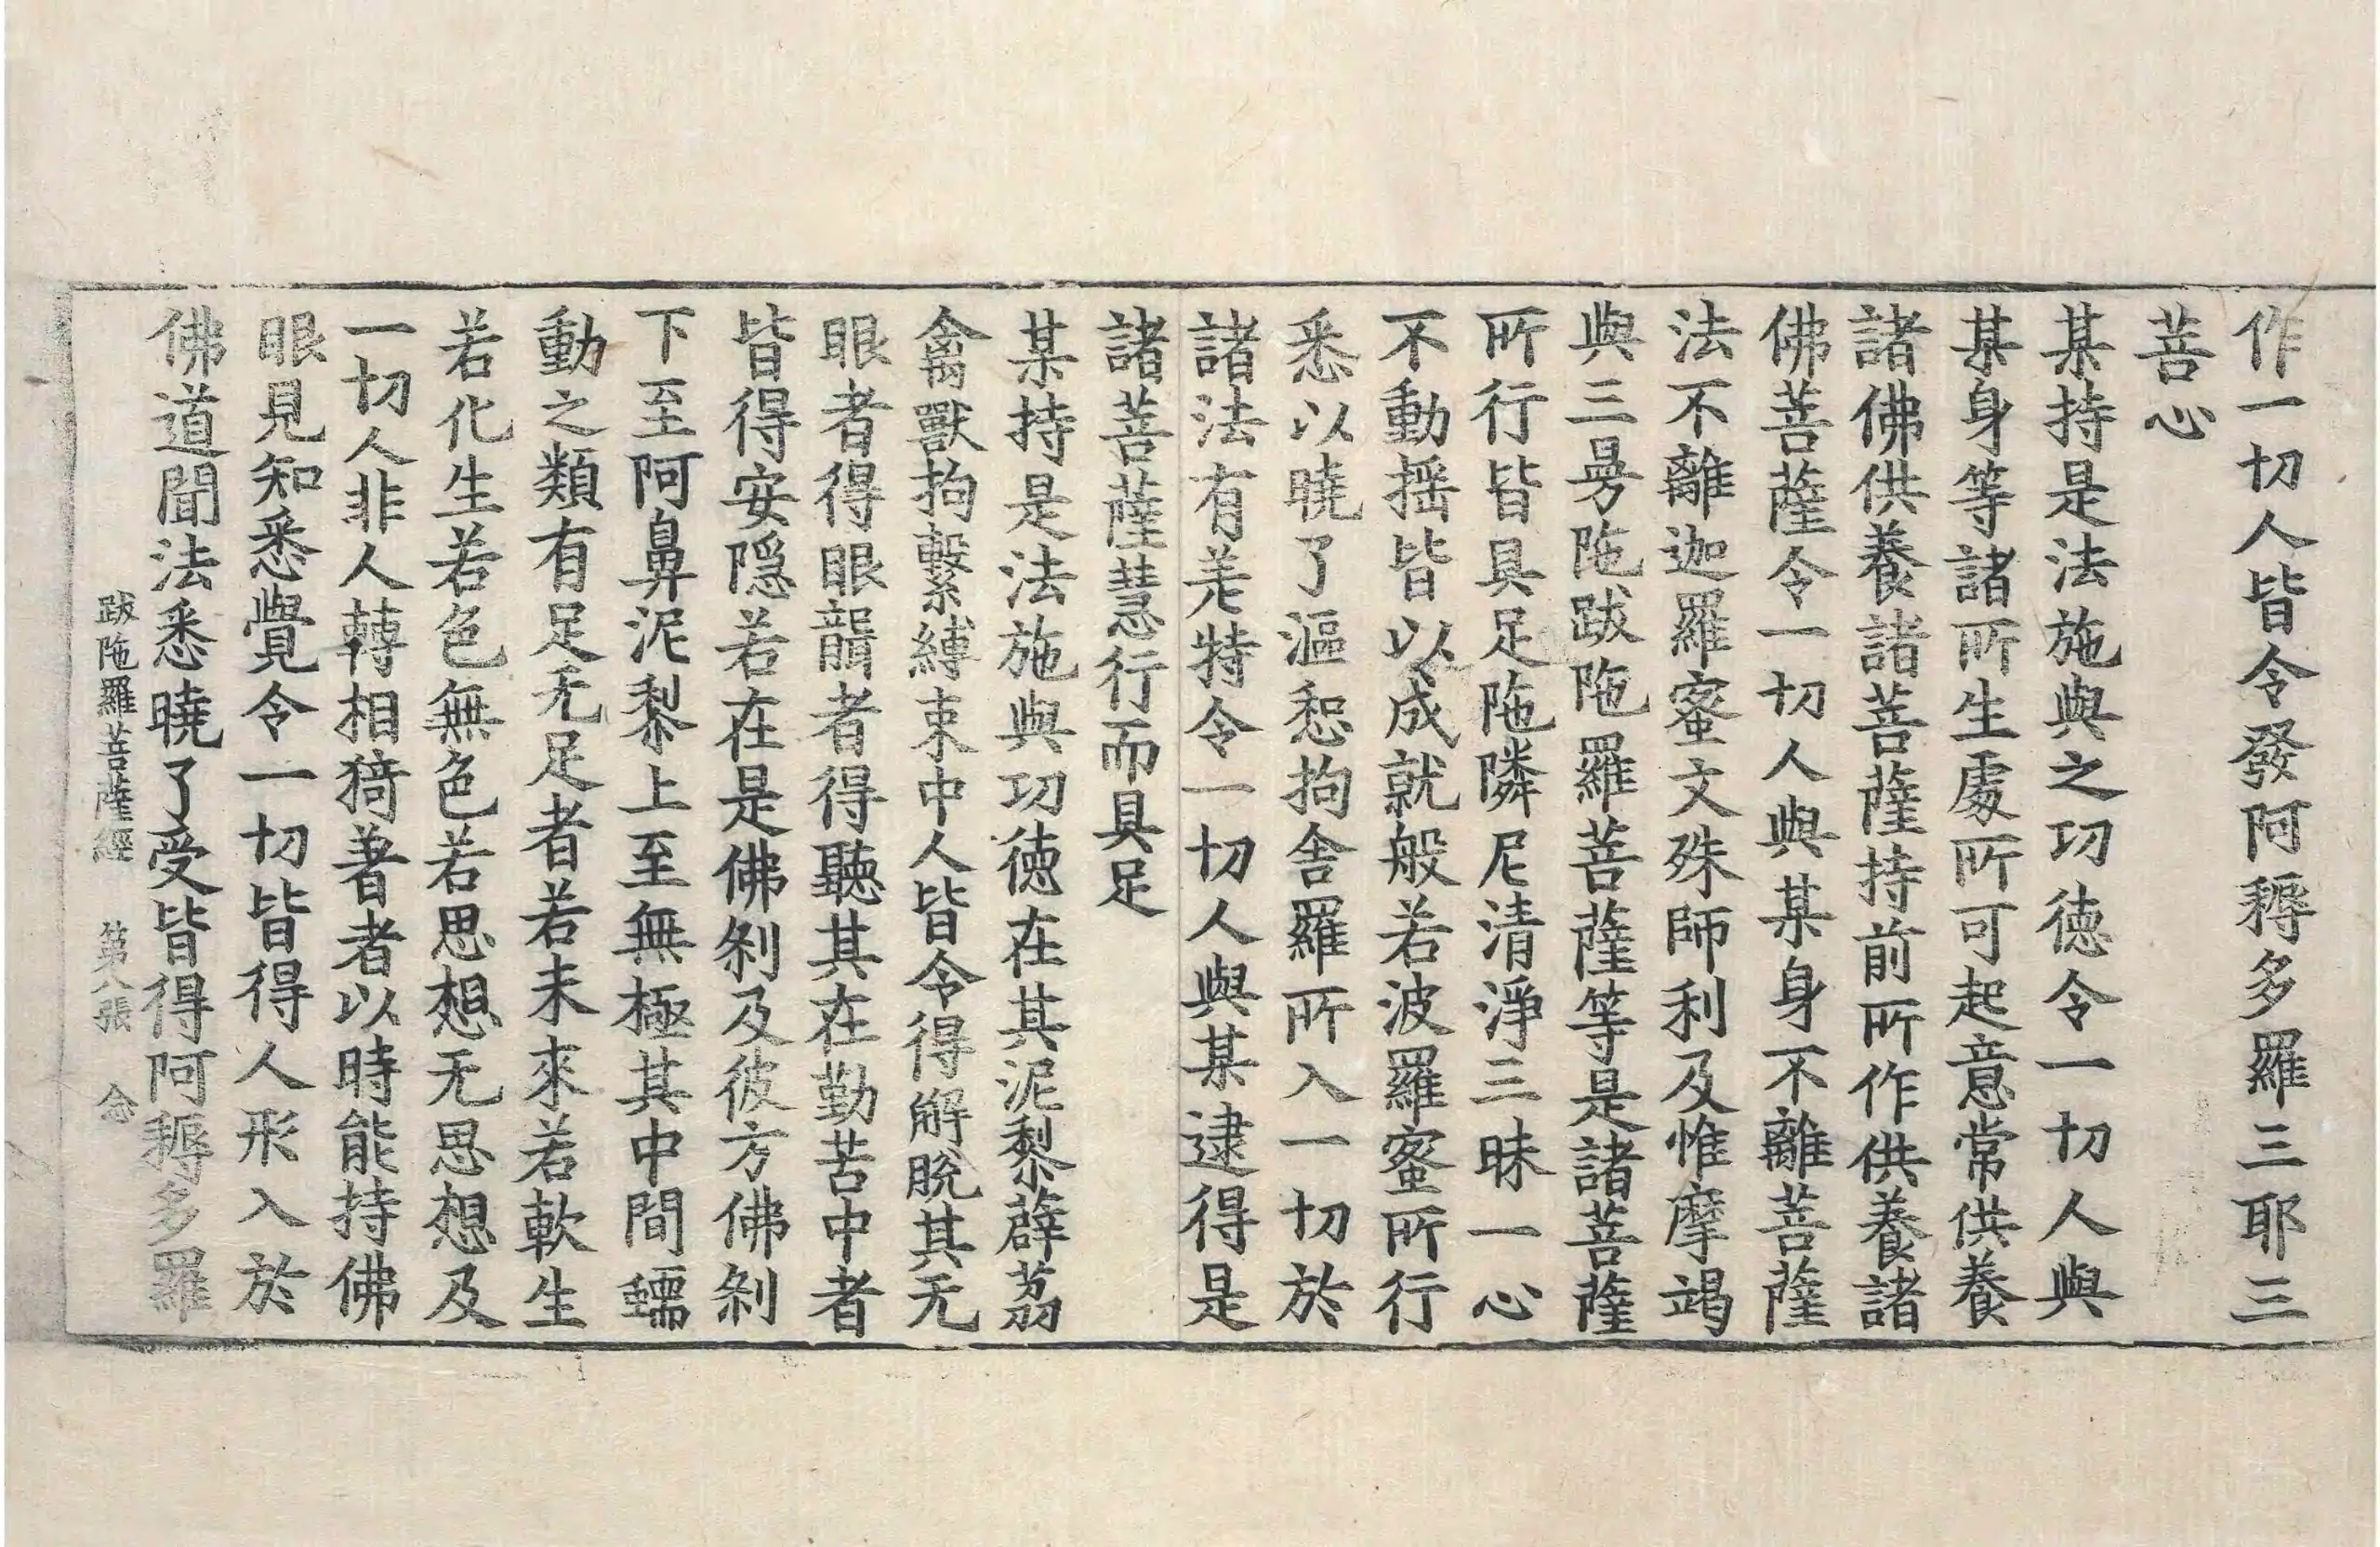 作一切人皆令發阿耨多羅三耶三
菩心
某持是法施與之功德令一切人與
某身等諸所生處所可起意常供養
諸佛供養諸菩薩持前所作供養諸
佛菩薩令一切人與某身不離菩薩
法不離迦羅蜜文殊師利及惟摩竭
與三曼陁跋陁羅菩薩等是諸菩薩
所行皆具足陁隣尼清淨三昧一心
不動揺皆以成就般若波羅蜜所行
悉以曉了漚惒拘舍羅所入一切於
諸法有差特令一切人與某逮得是
諸菩薩慧行而具足
某持是法施與功德在其泥黎薜荔
禽獸拘繫縛束中人皆令得解脫其无
眼者得眼聾者得聽其在勤苦中者
皆得安隱若在是佛剎及彼方佛剎
下至阿鼻泥黎上至無極其中間蠕
動之類有足无足者若未來若軟生
若化生若色無色若思想无思想及
一切人非人轉相猗著者以時能持佛
眼見知悉覺令一切皆得人形入於
佛道聞法悉曉了受皆得阿耨多羅
跋陁羅菩薩經 第八張 念